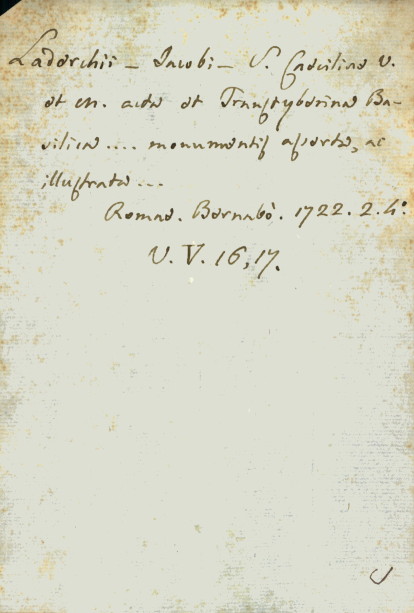 Laderchii - Jacobi - S. Caeciliae V.
et M. acta et Transtyberina Ba-
silica .... monumentis asserta, ac
illustrata ...
Romae. Bernabò. 1722. 2. 4.°
V. V. 16, 17.